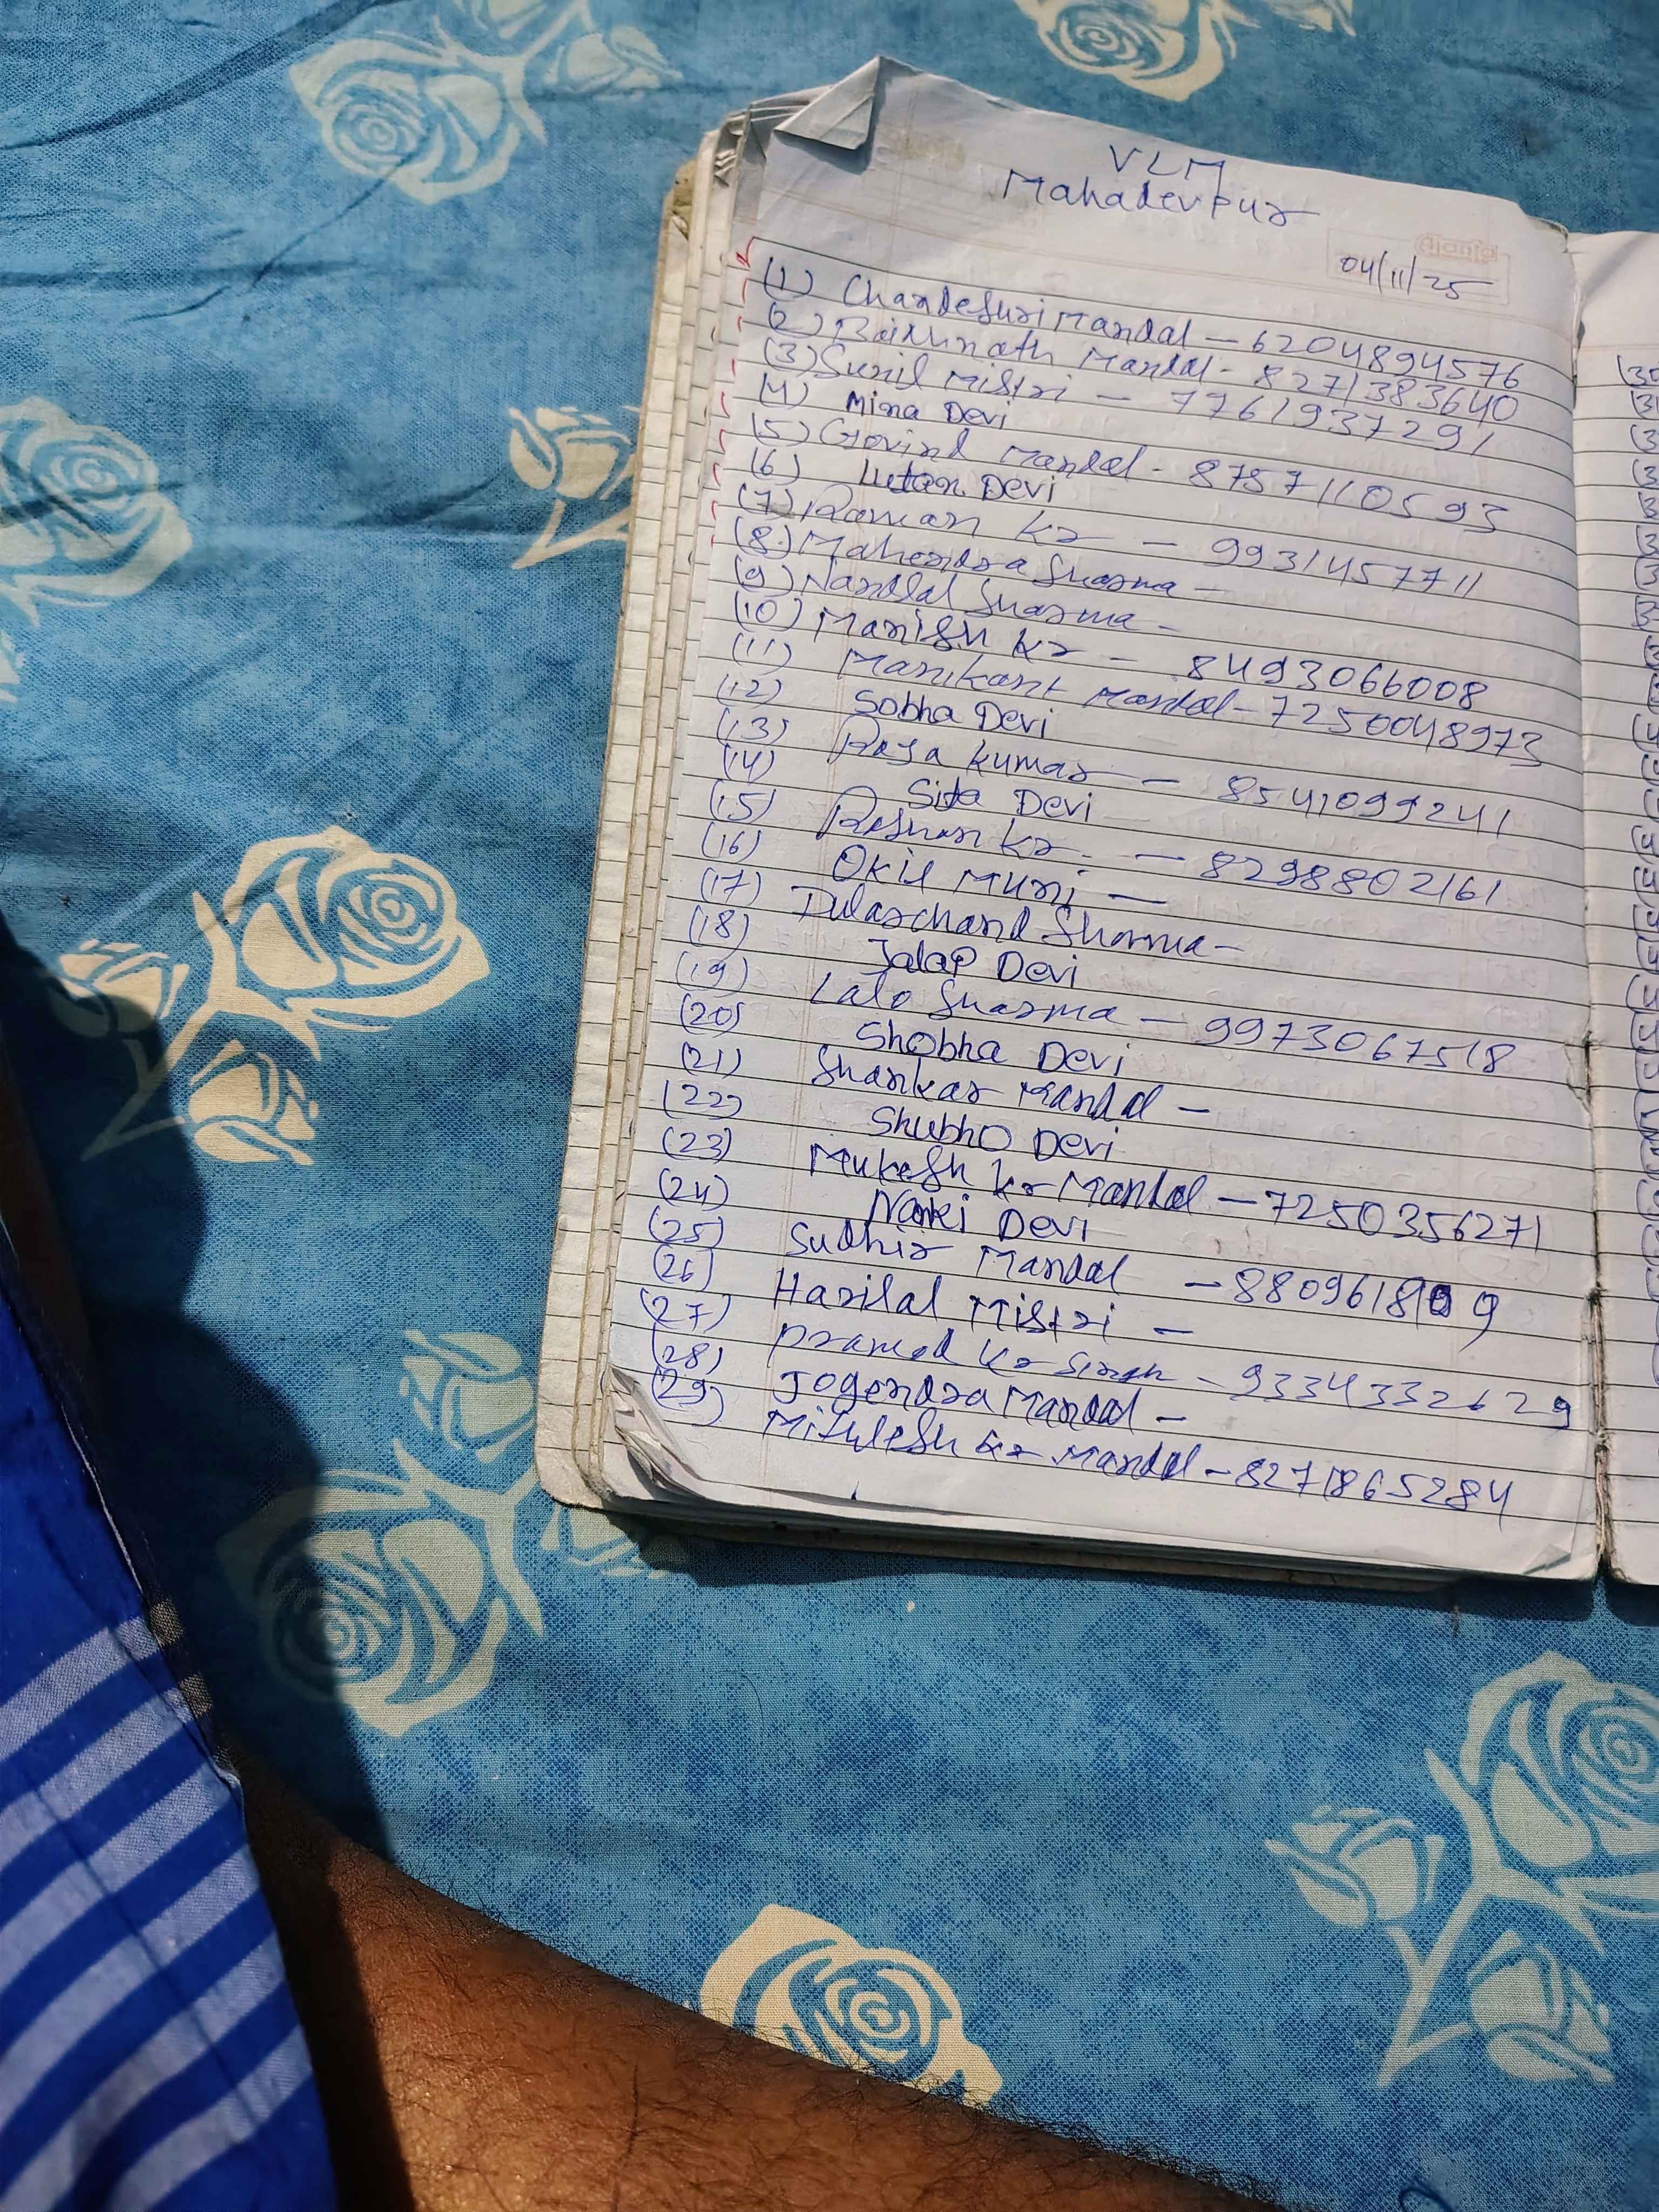 VLM
Mahadevpur
Ajanta
04/11/25
(1) Chandeshuri Mandal - 6204894576
(2) Baidhnath Mandal - 8271383640
(3) Sunil Mistri - 7761937291
(4) Mina Devi
(5) Govind Mandal - 8757110593
(6) Lutan Devi
(7) Raman kr - 9931457711
(8) Mahendra Sharma -
(9) Nandlal Sharma -
(10) Manish kr - 8493066008
(11) Manikant Mandal - 7250048973
(12) Sobha Devi
(13) Raja kumar - 8541099241
(14) Sita Devi
(15) Roshan kr. - 8298802161
(16) Okil Muni -
(17) Dularchand Sharma -
(18) Jalap Devi
(19) Lalo Sharma - 9973067518
(20) Shobha Devi
(21) Shankar Mandal -
(22) Shubho Devi
(23) Mukesh kr Mandal - 7250356271
(24) Nanki Devi
(25) Sudhir Mandal
(26) Harilal Mistri -
(27) Pramod kr Singh - 9334332629
(28) Jogendra Mandal -
(29) Mithlesh kr Mandal - 8271865284